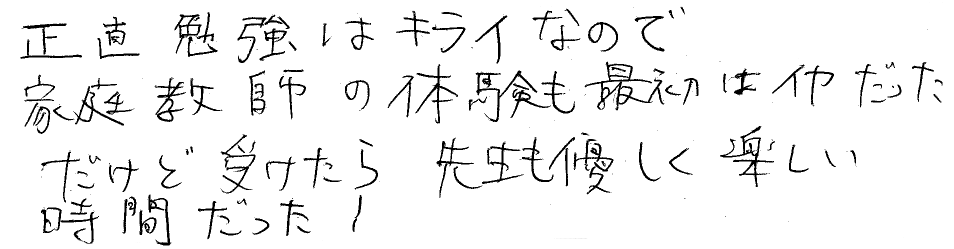 正直勉強はキライなので
家庭教師の体験も最初はイヤだった
だけど受けたら先生も優しく楽しい
時間だった!